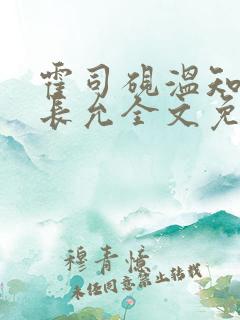 霍司砚温知
长允全文免
穆青忆
未经同意禁止转载